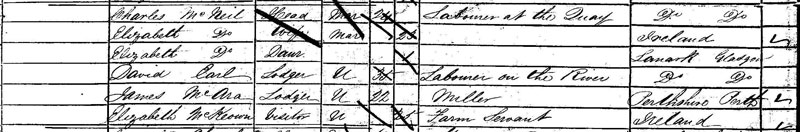 Charles McNeil Head Mar 24 Labourer at the Quay Do Do
Elizabeth Do Wife Mar 21 Ireland
Elizabeth Do Daur 1 Lanark Glasgow
David Earl Lodger U Labourer on the River Do Do
James McAra Lodger U 22 Miller Perthshire Perth
Elizabeth McKeown Visitor U Farm Servant Ireland